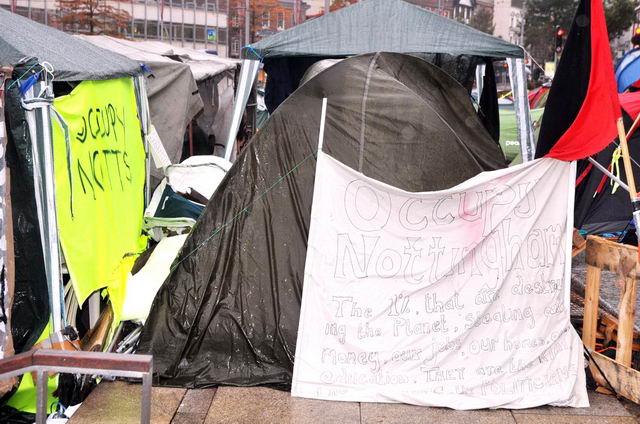 OCCUPY
NOTTS
Occupy
Nottingham
The 1%, that are
ing the Planet, stealing
Money, our jobs, our homes,
education. THEY are the